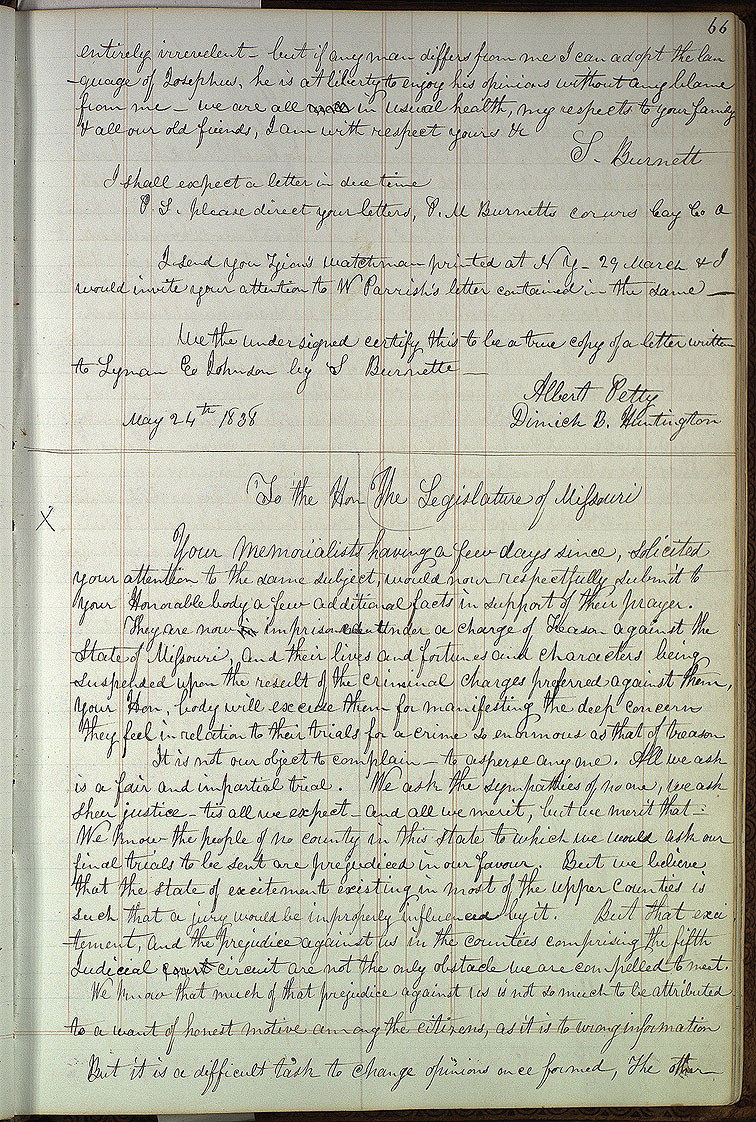 66
entirely irrevelent - but if any man differs from me I can adopt the lan
-guage of Josephus, he is at liberty to enjoy his opinions without any blame
from me - we are all in usual health, my respects to your family
& all our old friends, I am with respect yours &c
S. Burnett
I shall expect a letter in due time
P. S. please direct your letters, P. M Burnetts corners Cay Co
I send you Zion's watchman printed at N Y - 29 March & I
would invite your attention to W Parrish's letter contained in the same -
We the undersigned certify this to be a true copy of a letter written
to Lyman E Johnson by S Burnette -
Albert Petty
May 24th 1838
Dimick B. Huntington
To the Hon The Legislature of Missouri
X
Your memorialists having a few days since, solicited
your attention to the same subject, would now respectfully submit to
your Honorable body a few additional facts in support of their prayer.
They are now imprisoned under a charge of Treason against the
State of Missouri, and their lives and fortunes and characters being
suspended upon the result of the criminal charges preferred against them,
your Hon, body will excuse them for manifesting the deep concern
they feel in relation to their trials for a crime so enormous as that of treason
It is not our object to complain - to asperse any one. All we ask
is a fair and impartial trial. We ask the sympathies of no one, we ask
sheer justice - tis all we expect - and all we merit, but we merit that -
We know the people of no county in this State to which we would ask our
final trials to be sent are prejudiced in our favour. But we believe
that the state of excitement existing in most of the upper counties is
such that a jury would be improperly influenced by it. But that exci
-tement, and the prejudice against us in the counties comprising the fifth
Judicial court circuit are not the only obstacle we are compelled to meet.
We know that much of that prejudice against us is not so much to be attributed
to a want of honest motive among the citizens, as it is to wrong information
But it is a difficult task to change opinions once formed, The other